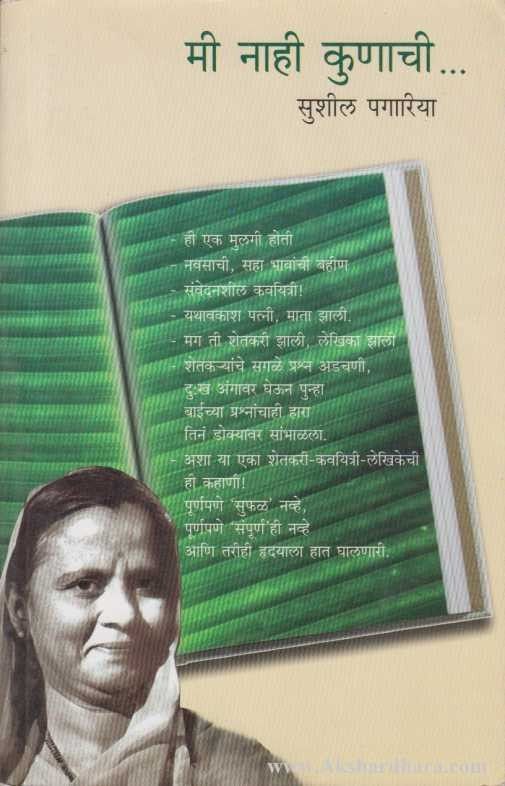 मी नाही कुणाची...
सुशील पगारिया
- ही एक मुलगी होती
- नवसाची, सहा भावांची बहीण
- संवेदनशील कवयित्री!
- यथावकाश पत्नी, माता झाली.
- मग ती शेतकरी झाली, लेखिका झाली
- शेतकऱ्यांचे सगळे प्रश्न अडचणी,
दुःख अंगावर घेऊन पुन्हा
बाईच्या प्रश्नांचाही हारा
तिनं डोक्यावर सांभाळला.
- अशा या एका शेतकरी-कवयित्री-लेखिकेची
ही कहाणी!
पूर्णपणे 'सुफळ' नव्हे,
पूर्णपणे 'संपूर्ण'ही नव्हे
आणि तरीही हृदयाला हात घालणारी.
www.Akshardhara.com